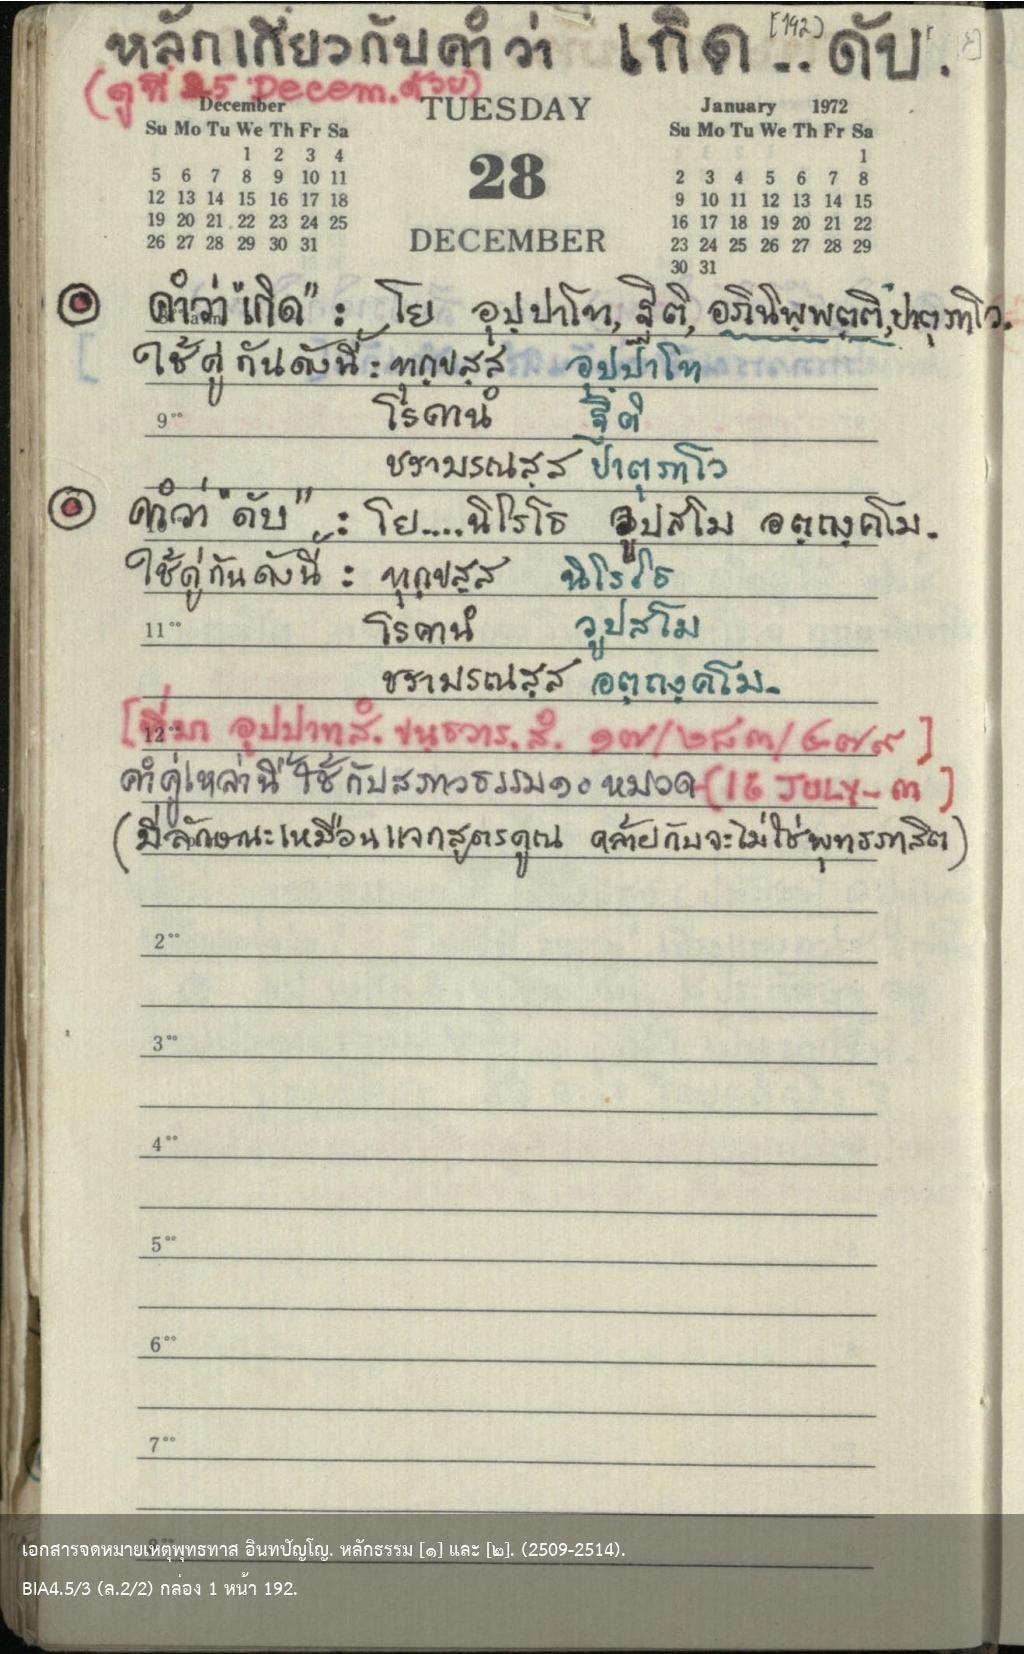 หลักเกี่ยวกับคำว่า เกิด..ดับ.
[192]
(ดูที่ 25 Decem. ด้วย)
December
Su Mo Tu We Th Fr Sa
1 2 3 4
5 6 7 8 9 10 11
12 13 14 15 16 17 18
19 20 21 22 23 24 25
26 27 28 29 30 31
TUESDAY
28
DECEMBER
January 1972
Su Mo Tu We Th Fr Sa
1
2 3 4 5 6 7 8
9 10 11 12 13 14 15
16 17 18 19 20 21 22
23 24 25 26 27 28 29
30 31
คำว่า "เกิด" : โย อุปฺปาโท, ฐีติ, อภินิพฺพตฺติ, ปาตุภาโว.
ใช้คู่กันดังนี้ : ทุกฺขสฺส อุปฺปาโท
9°° โรคานํ ฐีติ
ชรามรณสฺส ปาตุภาโว
คำว่า "ดับ" : โย....นิโรโธ วูปสโม อตฺถงฺคโม.
ใช้คู่กันดังนี้ : ทุกฺขสฺส นิโรโธ
11°° โรคานํ วูปสโม
ชรามรณสฺส อตฺถงฺคโม.
12°° [ที่มา อุปปาทสํ. ขนฺธวาร. สํ. ๑๗/๒๘๓/๔๗๙]
คำคู่เหล่านี้ ใช้กับสภาวธรรม ๑๐ หมวด (16 JULY-๓]
(มีลักษณะเหมือนแจกสูตรคูณ คล้ายกับจะไม่ใช่พุทธภาสิต)
2°°
3°°
4°°
5°°
6°°
7°°
เอกสารจดหมายเหตุพุทธทาส อินทปัญโญ. หลักธรรม [๑] และ [๒]. (2509-2514).
BIA4.5/3 (ล.2/2) กล่อง 1 หน้า 192.